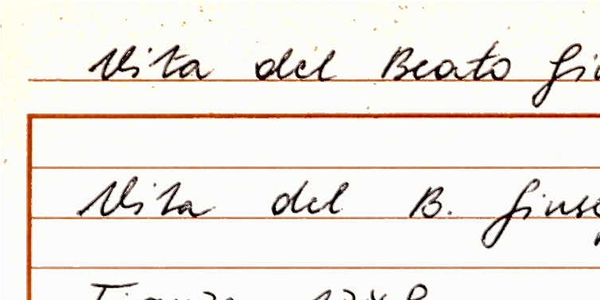 Vita del Beato Giu
Vita del B. Giuse